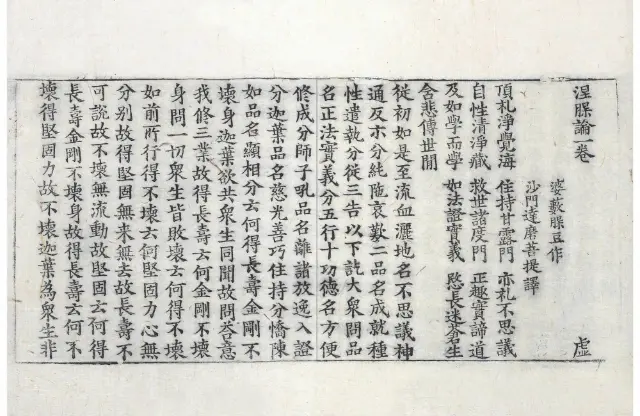 涅槃論一卷 虛
婆藪槃豆作
沙門達磨菩提譯
頂礼淨覺海 住持甘露門 亦礼不思議
自性清淨藏 救世諸度門 正趣實諦道
及如學而學 如法證實義 愍長迷蒼生
含悲傳世間
從初如是至流血灑地名不思議神
通反示分純陁哀歎二品名成就種
性遣執分從三告以下訖大衆問品
名正法實義分五行十功德名方便
修成分師子吼品名離諸放逸入證
分迦葉品名慈光善巧住持分憍陳
如品名顯相分云何得長壽金剛不
壞身迦葉欲共衆生同聞故問荅意
我修三業故得長壽云何金剛不壞
身問一切衆生皆敗壞云何得不壞
如前所行得不壞云何堅固力心無
分別故得堅固無來無去故長壽不
可說故不壞無流動故堅固云何得
長壽金剛不壞身故得長壽云何不
壞得堅固力故不壞迦葉為衆生非